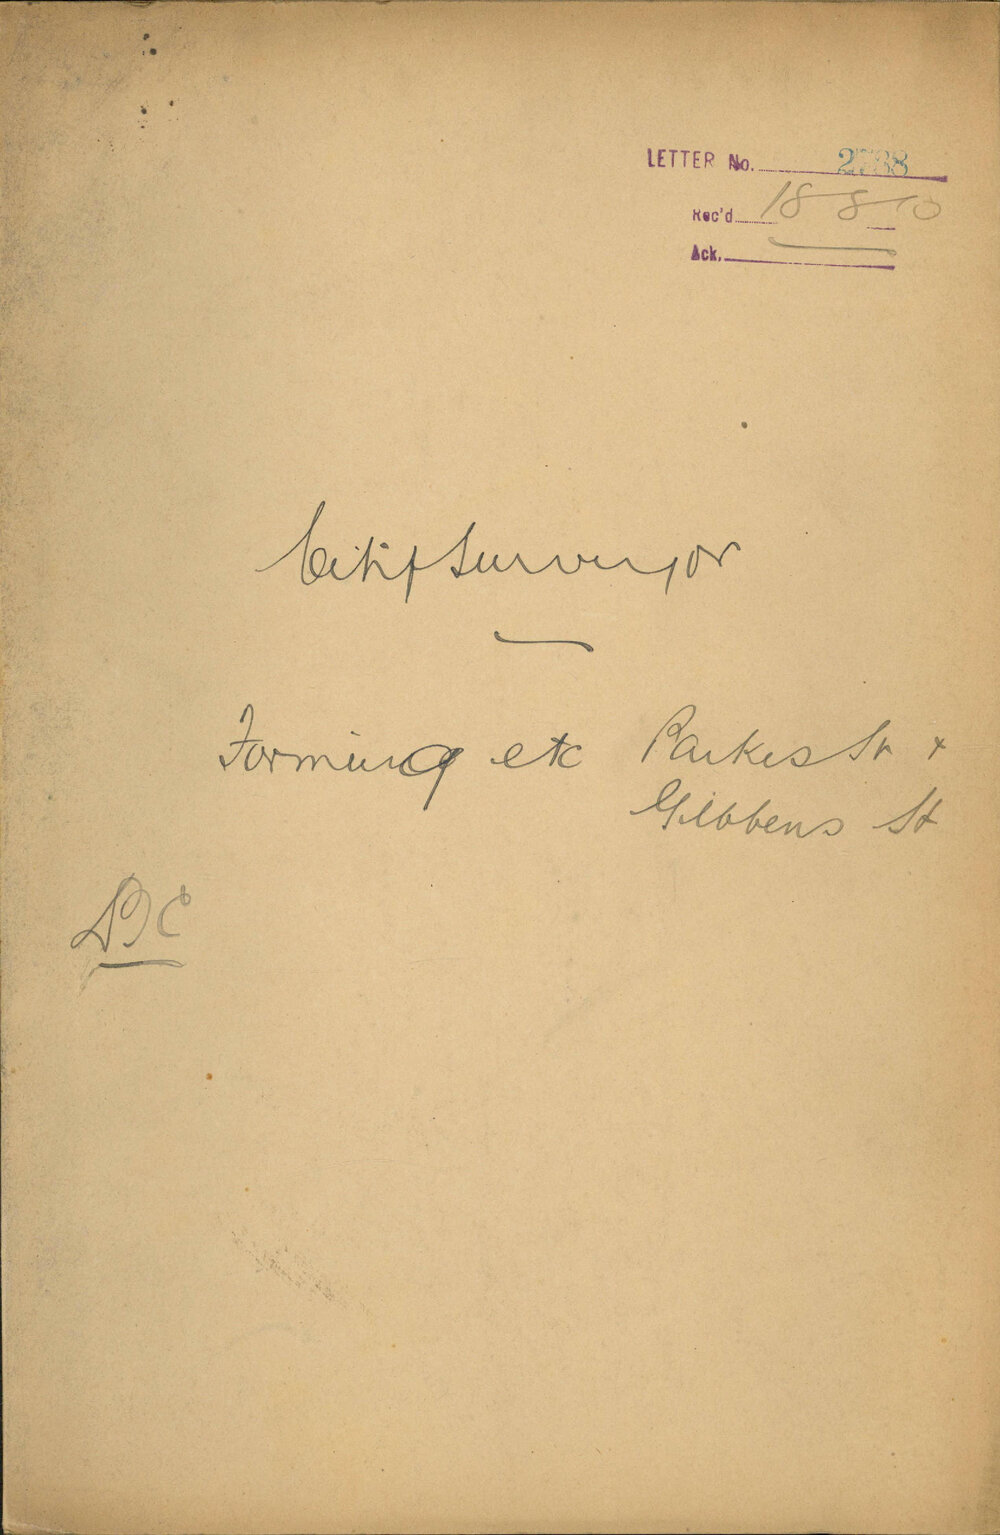 LETTER No. 2738
Rec'd 18 8 10
Ack.
City Surveyor
Forming etc Parkes St +
Gibbens St